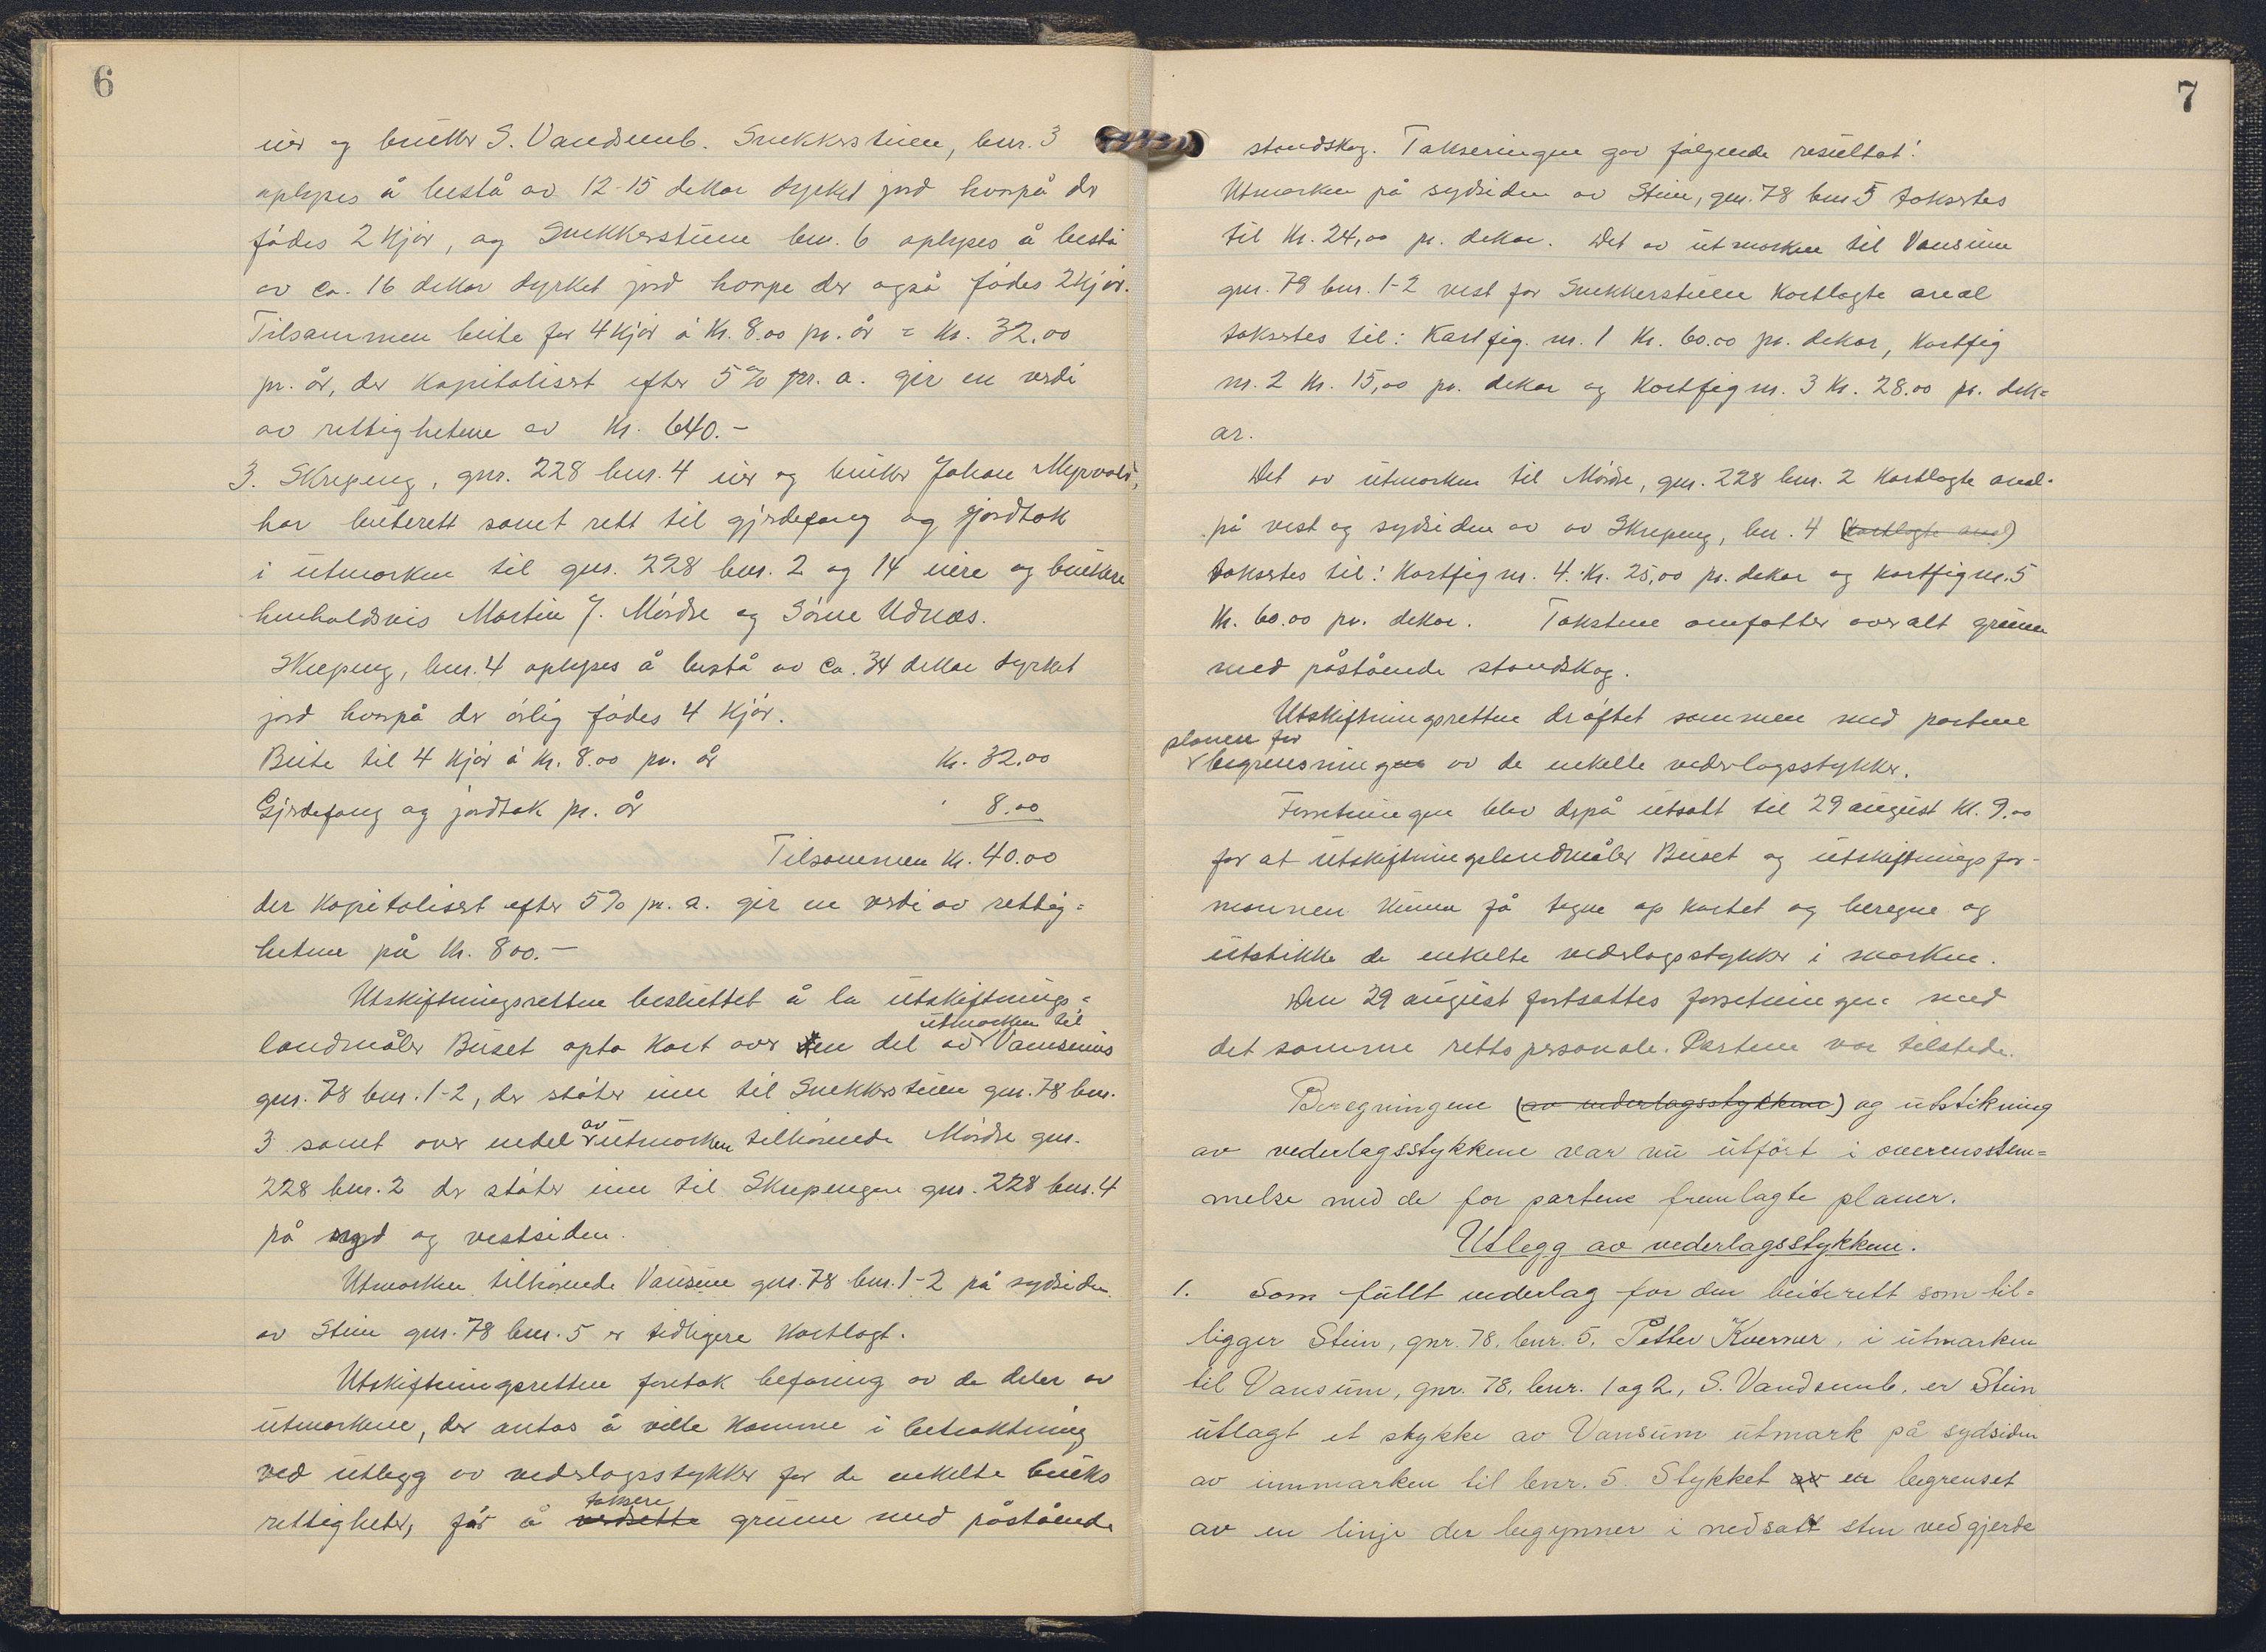 6
eier og bruker S. Vandsemb. Snekkerstuen, bnr. 3
oplyses å bestå av 12-15 dekar dyrket jord hvorpå der
fødes 2 kjør, og Snekkerstuen bnr. 6 oplyses å bestå
av ca. 16 dekar dyrket jord hvorpe der også fødes 2 kjør.
Tilsammen beite for 4 kjør á kr. 8.00 pr. år = kr. 32.00
pr. år, der kapitalisert efter 5% pr. a. gir en verdi
av rettighetene av kr. 640.-
3. Skrepeng, gnr. 228 bnr. 4 eier og bruker Johan Myrvold,
har beiterett samt rett til gjerdefang og jordtak
i utmarken til gnr. 228 bnr. 2 og 14 eiere og brukere
henholdsvis Martin J. Mørdre og Sørine Udnæs.
Skrepeng, bnr. 4 oplyses å bestå av ca. 34 dekar dyrket
jord hvorpå der årlig fødes 4 kjør.
Beite til 4 kjør á kr. 8.00 pr. år kr. 32.00
Gjerdefang og jordtak pr. år " 8.00
Tilsammen kr. 40.00
der kapitalisert efter 5% pr. a. gir en verdi av rettig=
hetene på kr. 800.-
Utskiftningsretten besluttet å la utskiftnings=
utmarken til
landmåler Buset opta kart over den del av Vansums
gnr. 78 bnr. 1-2, der støter inn til Snekkerstuen gnr. 78 bnr.
3 samt over endel av utmarken tilhørende Mørdre gnr.
228 bnr. 2 der støter inn til Skrepengen gnr. 228 bnr. 4
på syd og vestsiden.
Utmarken tilhørende Vansum gnr. 78 bnr. 1-2 på sydsiden
av Stein gnr. 78 bnr. 5 er tidligere kartlagt.
Utskiftningsretten foretok befaring av de deler av
utmarkene, der antas å ville komme i betraktning
ved utlegg av vederlagsstykker for de enkelte bruks
taksere
rettigheter, for å verdsette grunn med påstående
7
standskog. Takseringen gav følgende resultat:
Utmarken på sydsiden av Stein, gnr. 78 bnr 5 taksertes
til kr. 24,00 pr. dekar. Det av utmarken til Vansum
gnr. 78 bnr. 1-2 vest for Snekkerstuen kartlagte areal
taksertes til: Kartfig. nr. 1 kr. 60.00 pr. dekar, kartfig
nr. 2 kr. 15,00 pr. dekar og kartfig nr. 3 kr. 28.00 pr. dek=
ar.
Det av utmarken til Mørdre, gnr. 228 bnr. 2 kartlagte areal
på vest og sydsiden av av Skrepeng, bnr. 4 (kartlagte areal)
taksertes til: Kartfig nr. 4. kr. 25,00 pr. dekar og kartfig nr. 5
kr. 60.00 pr. dekar. Takstene omfatter overalt grunn
med påstående standskog.
Utskiftningsretten drøftet sammen med partene
planen for
begrensningen av de enkelte vederlagsstykker.
Forretningen blev derpå utsatt til 29 august kl. 9.00
for at utskiftningslandmåler Buset og utskiftningsfor-
mannen kunne få tegne op kartet og beregne og
utstikke de enkelte vederlagsstykker i marken.
Den 29 august fortsattes forretningen med
det samme rettspersonale. Partene var tilstede.
Beregningene (av vederlagsstykkene) og utstikning
av vederlagsstykkene var nu utført i overensstem=
melse med de for partene fremlagte planer.
Utlegg av vederlagsstykkene.
1. Som fullt vederlag for den beiterett som til=
ligger Stein, gnr. 78, bnr. 5, Petter Kverner, i utmarken
til Vansum, gnr. 78, bnr. 1 og 2, S. Vandsemb, er Stein
utlagt et stykke av Vansum utmark på sydsiden
av innmarken til bnr. 5. Stykket av er begrenset
av en linje der begynner i nedsatt sten ved gjerde